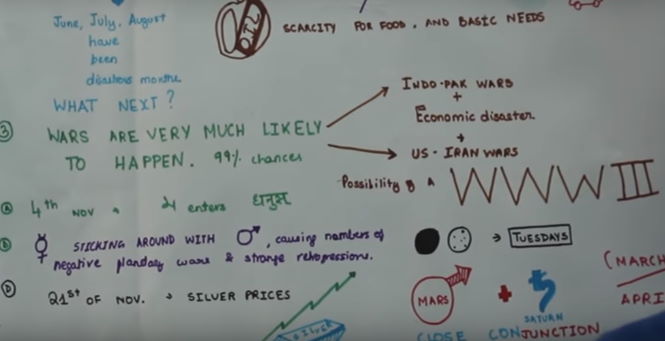 June, July, August
have
been
disastrous months
WHAT NEXT?
OIL
SCARCITY FOR FOOD, AND BASIC NEEDS
③ WARS ARE VERY MUCH LIKELY
TO HAPPEN. 99% chances
INDO-PAK WARS
+
Economic disaster
+
US-IRAN WARS
Possibility of A WWW III
ⓐ 4th NOV ♃ enters धनुस
ⓑ ☿ STICKING AROUND WITH ♂, causing numbers of
negative planetary wars & strange
→ TUESDAYS
21st OF NOV. → SILVER PRICES
SILVER
MARS + SATURN
CLOSE CONJUNCTION
(MARCH
APRI